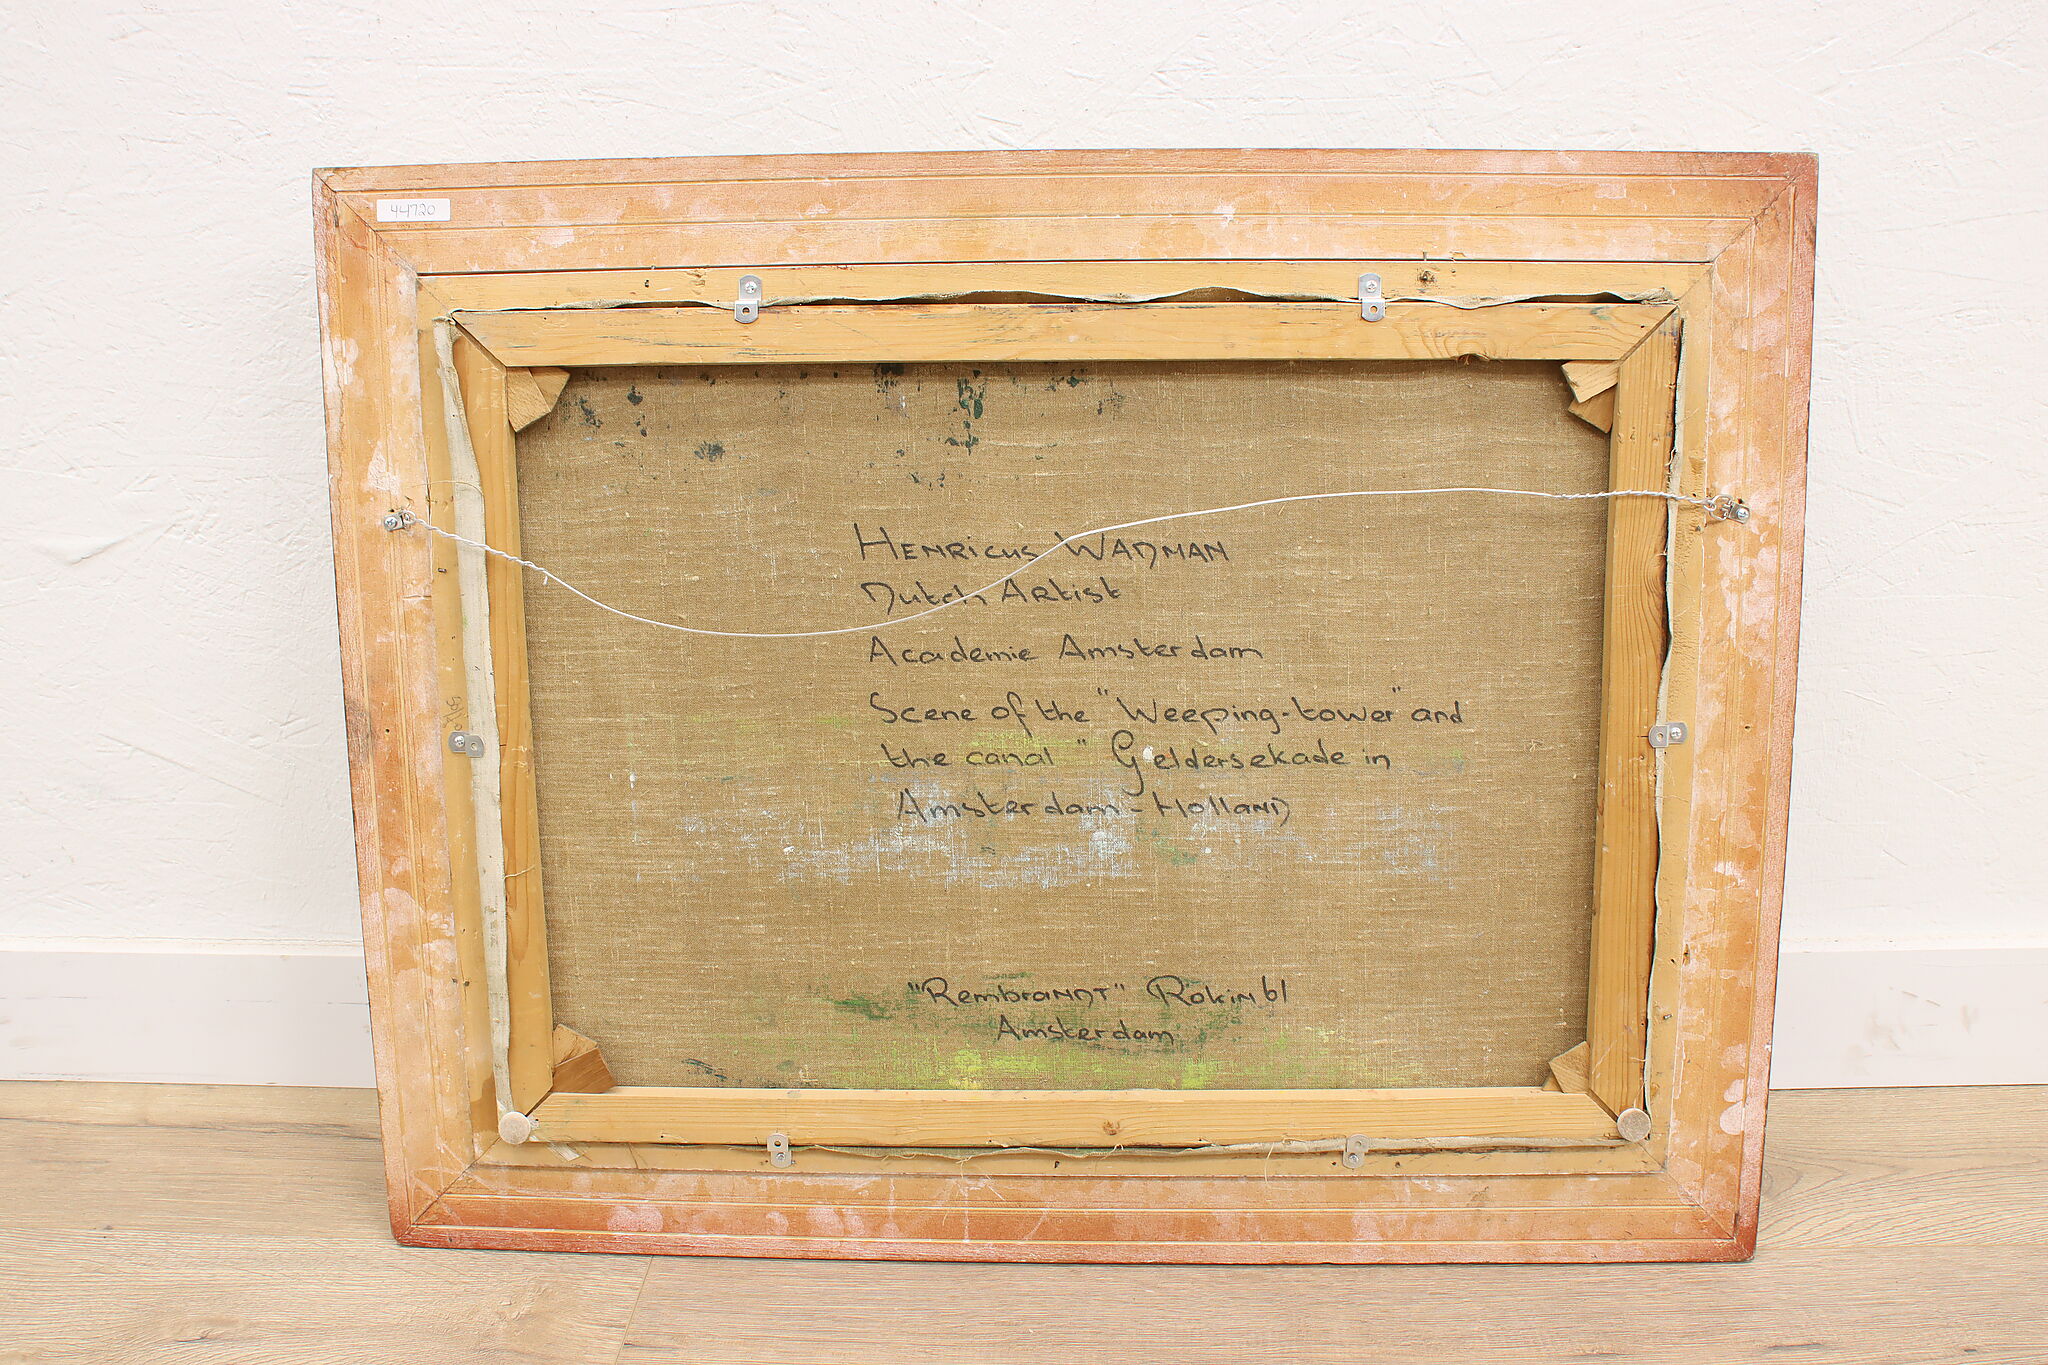 44720
HENRICUS WADMAN
Dutch Artist
Academie Amsterdam
Scene of the "Weeping-tower" and
the canal " Geldersekade in
Amsterdam - Holland
"Rembrandt" Rokin 61
Amsterdam